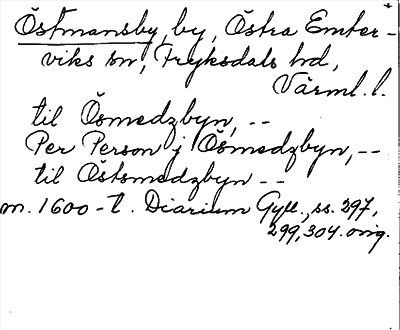 Östmansby, by, Östra Emter-
viks sn, Fryksdals hd,
Värml. l.
til Ösmedzbyn, --
Per Person j Ösmedzbyn, --
til Östsmedzbyn --
m. 1600-t. Diarium Gyll., ss. 297,
299, 304. orig.